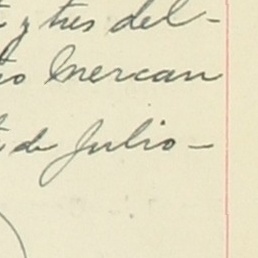 y tres del-
io Mercan
de Julio-